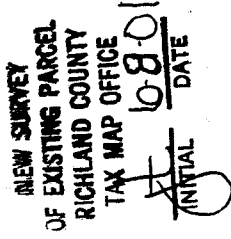 NEW SURVEY
OF EXISTING PARCEL
RICHLAND COUNTY
TAX MAP OFFICE
6-8-01
INITIAL DATE